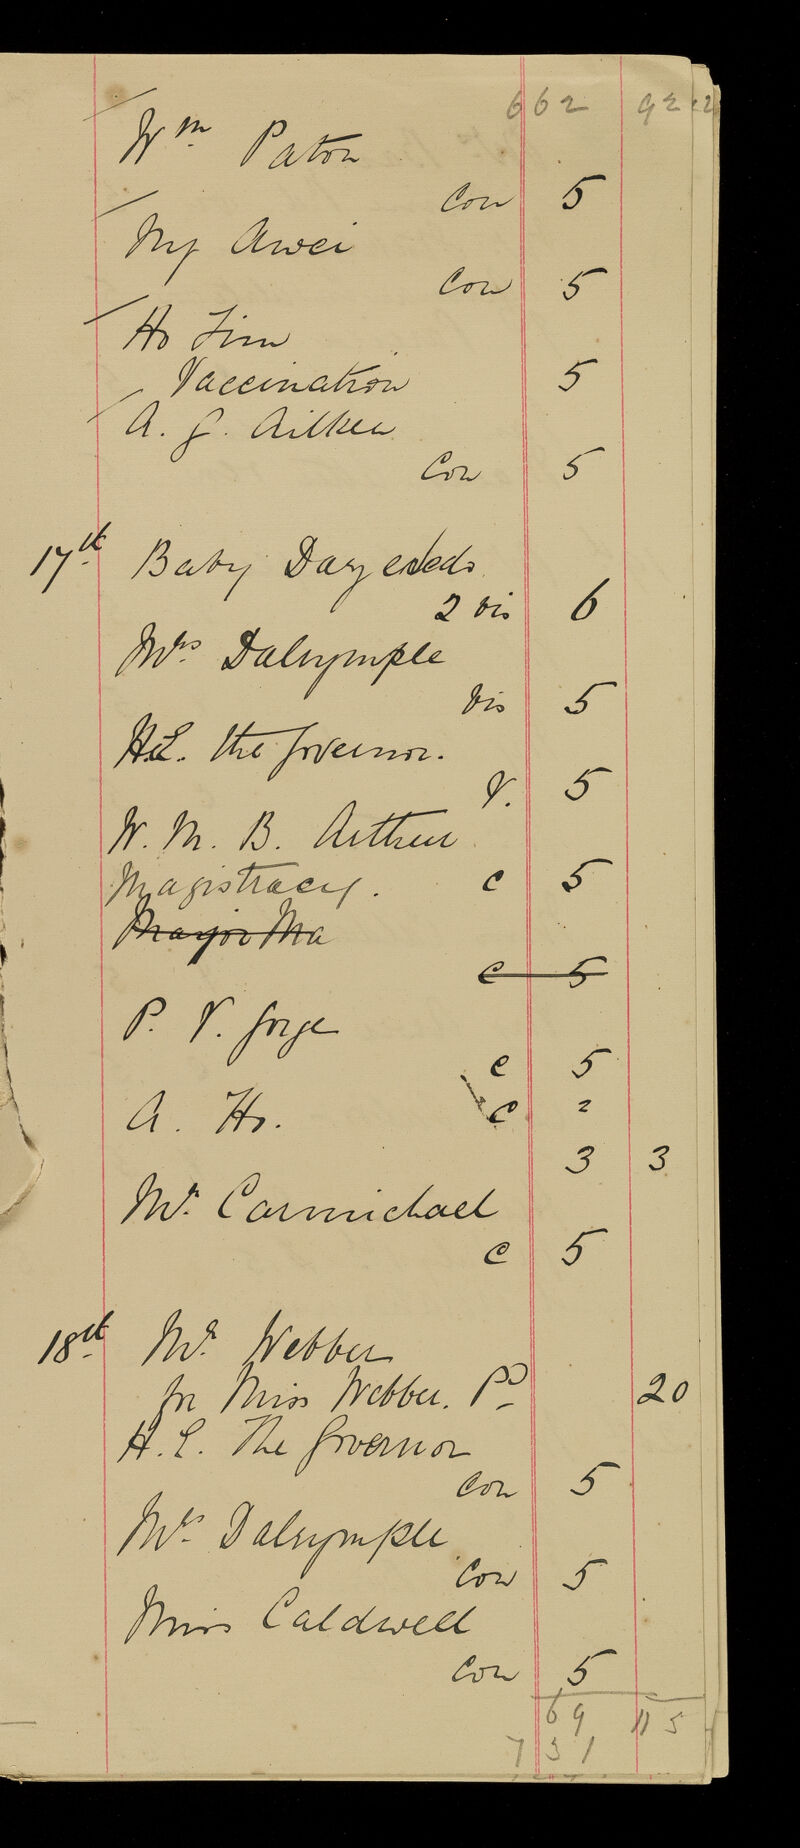 662 92
Wm Paton
Con 5
Ny Awei
Con 5
Ho Lim
Vaccination 5
A. G. Aitken
Con 5
17th Baby
2 vis 6
Mrs Dalrymple
Vis 5
H.E. the Governor.
V. 5
W. M. B. Arthur
Magistracy. C 5
Major Ma
C 5
P. V. Jorge
C 5
A. Ho. C 2
3 3
Mr. Carmichael
C 5
18th Mr. Webber
for Miss Webber. Pd 20
H.E. The Governor
Con 5
Mrs Dalrymple
Con 5
Miss Caldwell
Con 5
69 115
731